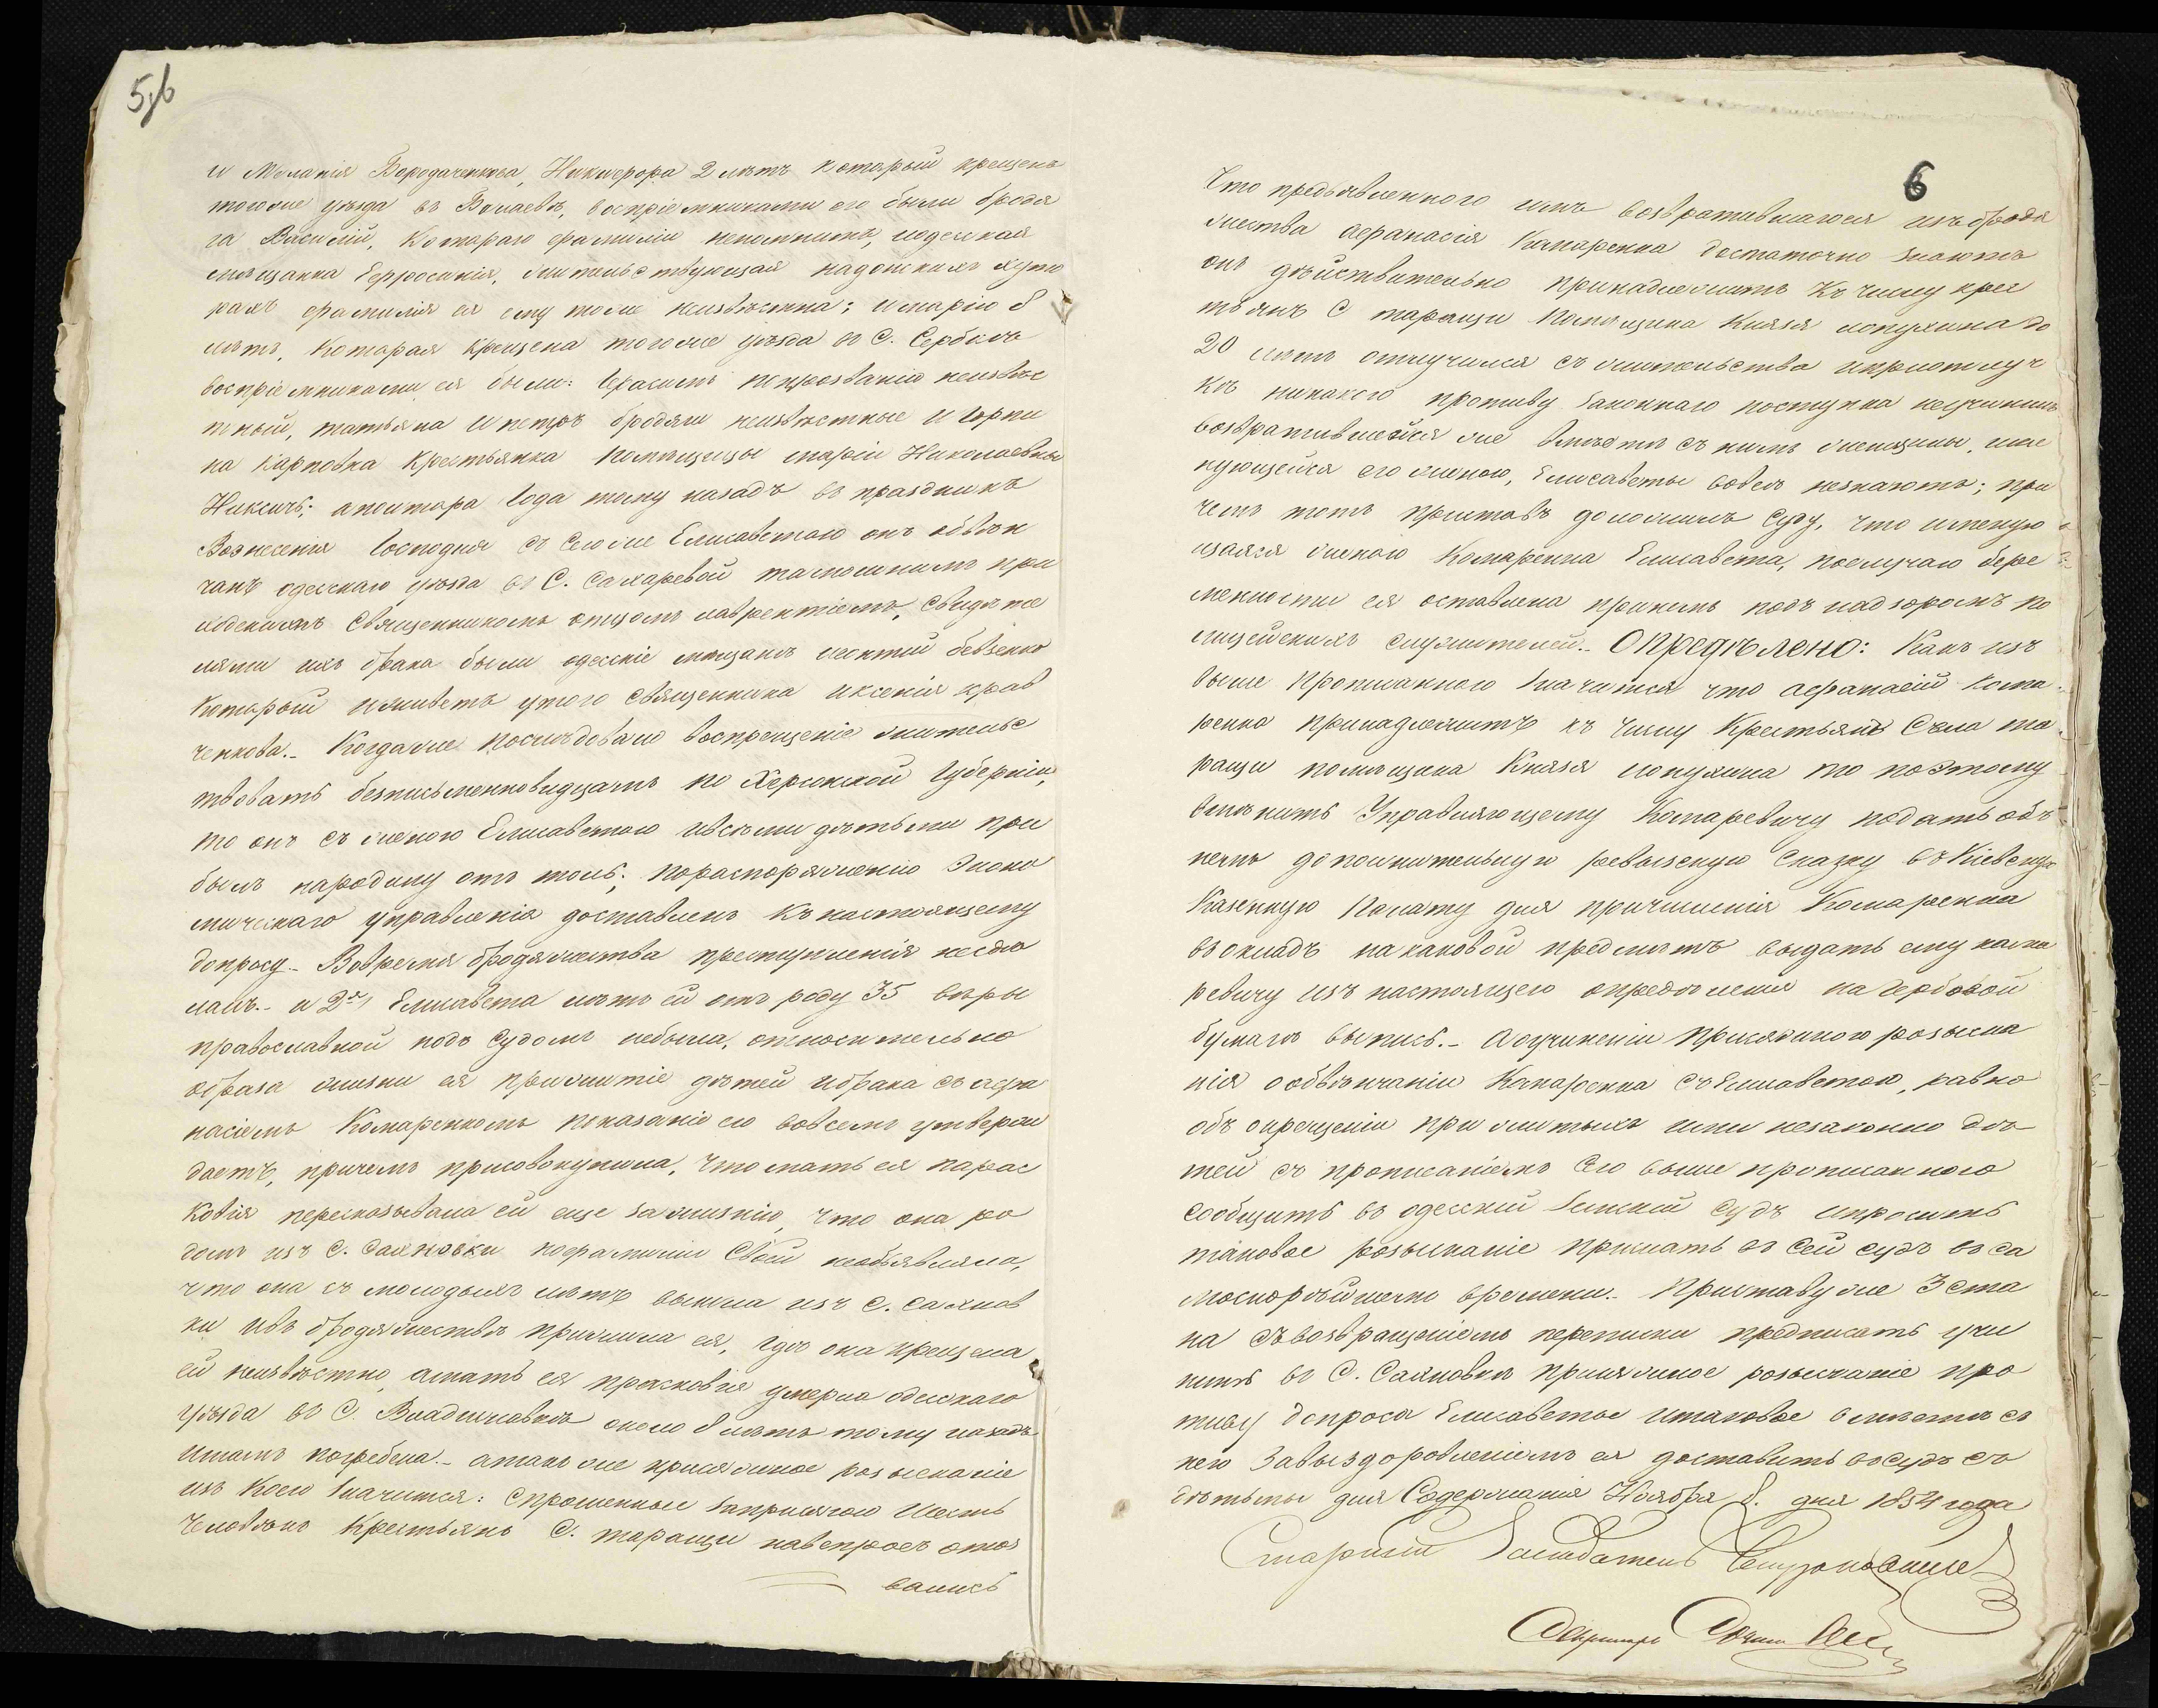 5об
и Меланія Бородаченкова, Никифора 2 лѣтъ который крещенъ
тогоже уѣзда въ Валаевѣ, воспріемниками его были бродя
га Василій, котораго фамиліи непомнитъ, иодесская
мѣщанка Евфросинія, жительствующая надошкихъ хуто
рахъ фамилія ея ему тоже неизвѣстна; и марію 8
лѣтъ, которая крещена тогоже уѣзда въ С. Сербкѣ
воспріемниками ея были: Герасимъ попрозванію неизвѣс
тный, татьяна и петръ бродяги неизвѣстные и Горпи
на карповна крестьянка помѣщицы маріи Николаевны
Никсичъ; аполтора года тому назадъ въ праздникъ
Вознесенія Господня съ сеюже Елисаветою онъ обвѣн
чанъ одесскаго уѣзда въ С. Сахаревой тамошнимъ при
ходскимъ священникомъ отцомъ лаврентіемъ, свидѣте
лями ихъ брака были одесскіе мѣщане леонтій бевзенко
который иживетъ утого священника иксенія крав
ченкова.- Когдаже послѣдовало воспрещеніе жительс
твовать безписьменновидцамъ по Херсонской Губерніи,
то онъ съ женою Елисаветою ивсѣми дѣтьми при
былъ народину отъ толь; пораспоряженію Эконо
мическаго управленія доставленъ къ настоящему
допросу.- Вовремя бродяжества преступленія несдѣ
лалъ.- и 2я, Елисавета лѣтъ ей отъ роду 35 вѣры
православной подъ судомъ небыла, относительно
образа жизни ея прижитіе дѣтей ибрака съ афа
насіемъ Комаренкомъ показаніе его вовсемъ утверж
даетъ, причемъ присовокупила, что мать ея парас
ковія пересказывала ей еще зажизнію, что она ро
домъ изъ С. Сахновки пофамиліи своей необъявляла,
что она съ молодыхъ лѣтъ вышла изъ С. Сахнов
ки ивъ бродяжествѣ прижила ея, гдѣ она крещена
ей неизвѣстно, амать ея прасковія умерла одесскаго
уѣзда въ С. Владиміровкѣ около 8 лѣтъ тому назадъ
итамъ погребена.- атакже присяжное розысканіе
изъ коего значится: спрошенные заприсягою шесть
человѣкъ крестьянъ С. таращи навопросъ отоз
вались
6
Что предъявленного имъ возвратившагося изъ бродя
жества афанасія Комаренка достаточно знаютъ
онъ дѣйствительно принадлежитъ къ числу крес
тьянъ С таращи помѣщика князя лопухина до
20 лѣтъ отлучился съ жительства иприотлуч
кѣ никакого противу законнаго поступка неучинилъ
возвратившейся же вмѣстѣ съ нимъ женщины, име
нующейся его женою, Елисаветы вовсе незнаютъ; при
чемъ тотъ приставъ доложилъ суду, что именую
щаяся женою Комаренка Елисавета, послучаю бере
менности ея оставлена принемъ подъ надзоромъ по
лицейскихъ служителей.- Опредѣлено: Какъ изъ
выше прописанного значится что афанасій Кома
ренко принадлежитъ къ числу крестьянъ Села та
ращи помѣщика князя лопухина то поэтому
вмѣнить Управляющему Комаревичу подать объ
немъ дополнительную ревизскую сказку въ Кіевскую
Казенную Палату для причисленія Комаренка
въ окладъ накаковой предметъ выдать ему кома
ревичу изъ настоящего опредѣленія на гербовой
бумагѣ выпись.- Аоучиненіи присяжного розыска
нія ообвѣнчаніи Комаренка съ Елисаветою, равно
объ окрещеніи прижитыхъ ими незаконно дѣ
тей съ прописаніемъ всего выше прописанного
сообщить въ одесскій Земскій судъ ипросить
таковое розысканіе прислать въ сей судъ въ са
москорѣйшемъ времени.- Приставуже 3 ста
на съвозвращеніемъ переписки предписать учи
нить въ С. Сахновкѣ присяжное розысканіе про
тиву допроса Елисаветы итаковое вмѣстѣ съ
нею завыздоровленіемъ ея доставить въ судъ съ
дѣтьми для Содержанія Ноября 8. дня 1854 года
Старшій Засѣдатель
Секретарь